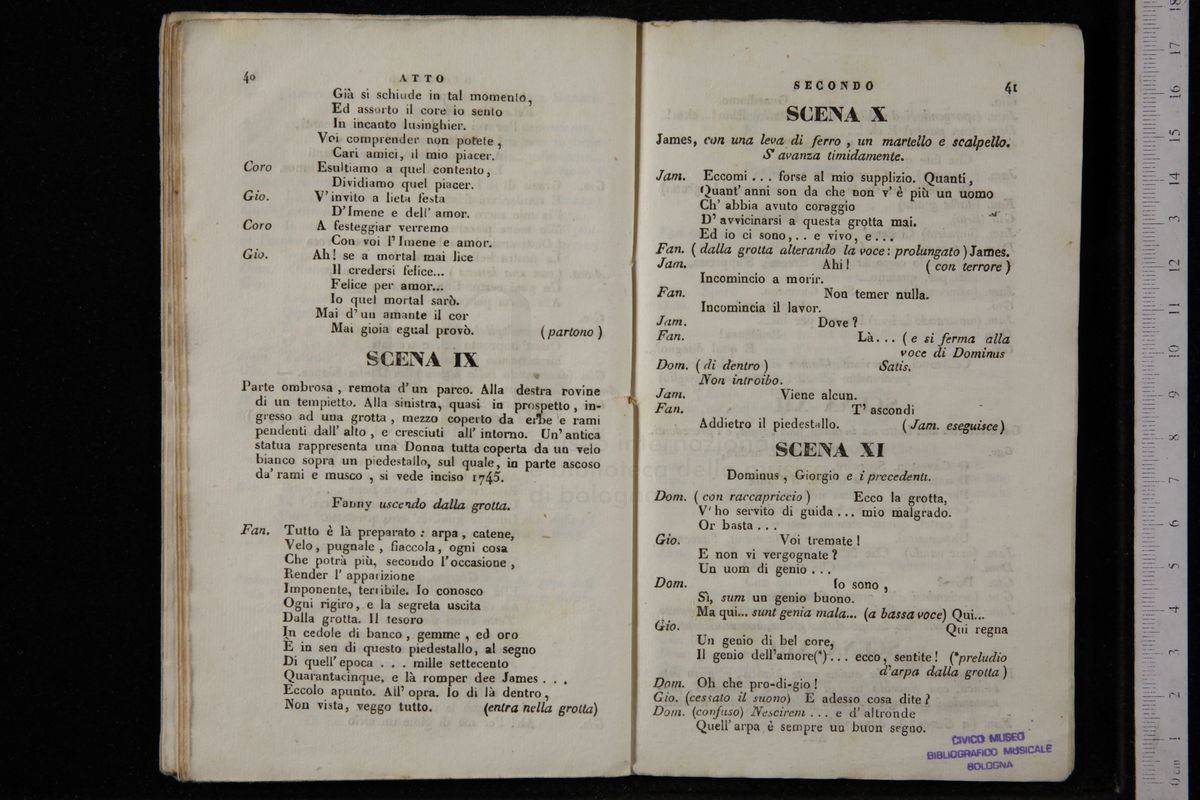 40 ATTO
Già si schiude in tal momento,
Ed assorto il core io sento
In incanto lusinghier.
Voi comprender non potete,
Cari amici, il mio piacer.
Coro Esultiamo a quel contento,
Dividiamo quel piacer.
Gio. V'invito a lieta festa
D'Imene e dell' amor.
Coro A festeggiar verremo
Con voi l'Imene e amor.
Gio. Ah! se a mortal mai lice
Il credersi felice...
Felice per amor...
Io quel mortal sarò.
Mai d'un amante il cor
Mai gioia egual provò. (partono)
SCENA IX
Parte ombrosa, remota d'un parco. Alla destra rovine
di un tempietto. Alla sinistra, quasi in prospetto, in-
gresso ad una grotta, mezzo coperto da erbe e rami
pendenti dall' alto, e cresciuti all' intorno. Un' antica
statua rappresenta una Donna tutta coperta da un velo
bianco sopra un piedestallo, sul quale, in parte ascoso
da' rami e musco, si vede inciso 1745.
Fanny uscendo dalla grotta.
Fan. Tutto è là preparato: arpa, catene,
Velo, pugnale, fiaccola, ogni cosa
Che potrà più, secondo l'occasione,
Render l' apparizione
Imponente, terribile. Io conosco
Ogni rigiro, e la segreta uscita
Dalla grotta. Il tesoro
In cedole di banco, gemme, ed oro
È in sen di questo piedestallo, al segno
Di quell' epoca . . . mille settecento
Quarantacinque, e là romper dee James . . .
Eccolo apunto. All' opra. Io di là dentro,
Non vista, veggo tutto. (entra nella grotta)
SECONDO 41
SCENA X
James, con una leva di ferro, un martello e scalpello.
S' avanza timidamente.
Jam. Eccomi . . . forse al mio supplizio. Quanti,
Quant' anni son da che non v' è più un uomo
Ch' abbia avuto coraggio
D' avvicinarsi a questa grotta mai.
Ed io ci sono, . . e vivo, e . . .
Fan. (dalla grotta alterando la voce: prolungato) James.
Jam. Ahi! (con terrore)
Incomincio a morir.
Fan. Non temer nulla.
Incomincia il lavor.
Jam. Dove?
Fan. Là. . . (e si ferma alla
voce di Dominus
Dom. (di dentro) Satis.
Non introibo.
Jam. Viene alcun.
Fan. T' ascondi
Addietro il piedestallo. (Jam. eseguisce)
SCENA XI
Dominus, Giorgio e i precedenti.
Dom. (con raccapriccio) Ecco la grotta,
V' ho servito di guida . . . mio malgrado.
Or basta . . .
Gio. Voi tremate!
E non vi vergognate?
Un uom di genio . . .
Dom. Io sono,
Sì, sum un genio buono.
Ma qui... sunt genia mala... (a bassa voce) Qui...
Gio. Qui regna
Un genio di bel core,
Il genio dell'amore(*) . . . ecco, sentite! (*preludio
d'arpa dalla grotta)
Dom. Oh che pro-di-gio!
Gio. (cessato il suono) E adesso cosa dite?
Dom. (confuso) Nescirem . . . e d' altronde
Quell' arpa è sempre un buon segno.
CIVICO MUSEO
BIBLIOGRAFICO MUSICALE
BOLOGNA